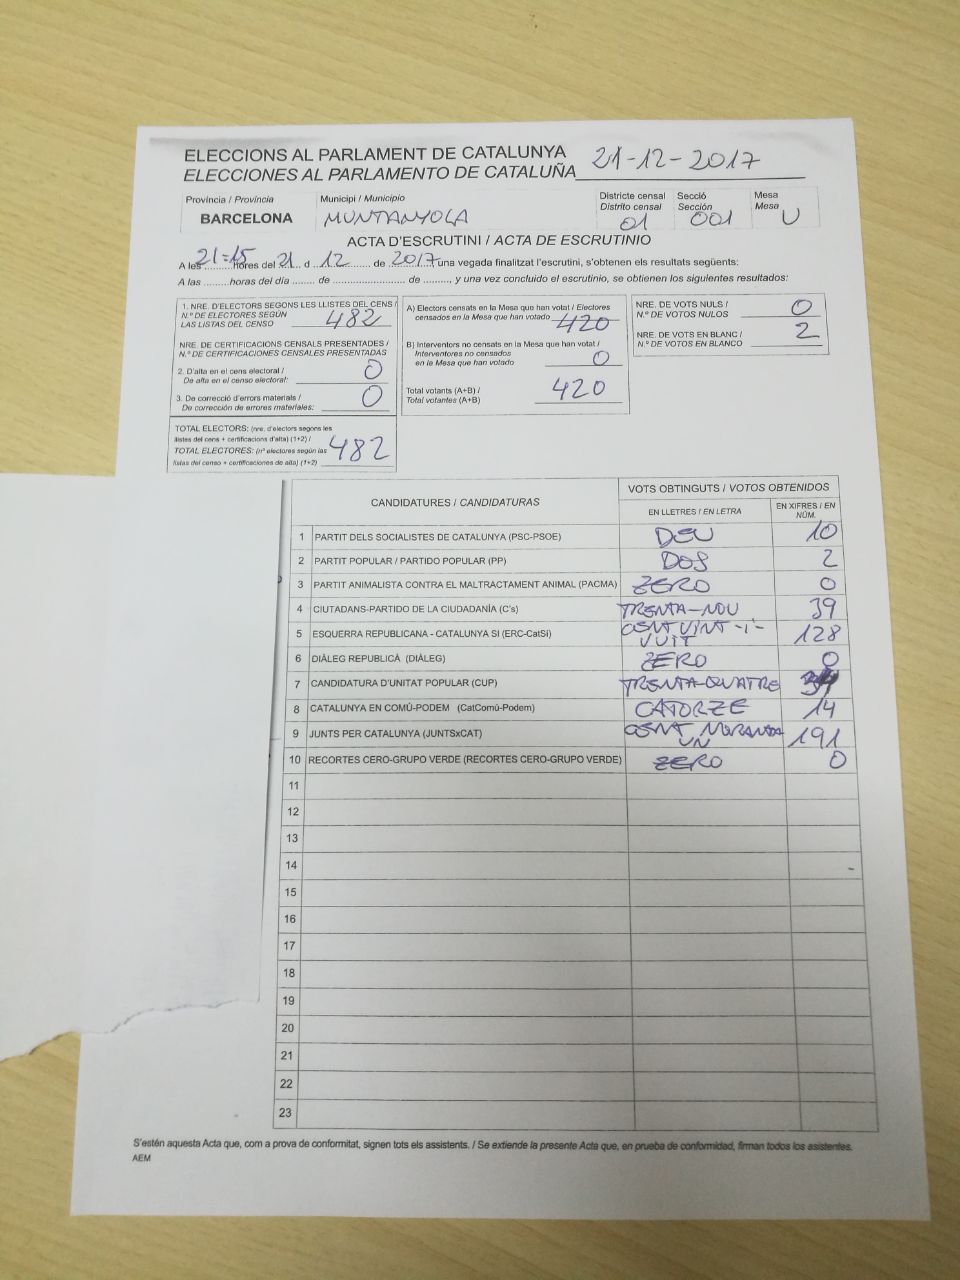 ELECCIONS AL PARLAMENT DE CATALUNYA 21-12-2017
ELECCIONES AL PARLAMENTO DE CATALUÑA
Província / Provincia Municipi / Municipio Districte censal Secció Mesa
Distrito censal Sección Mesa
BARCELONA MUNTANYOLA 01 001 U
ACTA D'ESCRUTINI / ACTA DE ESCRUTINIO
A les 21:15 hores del 21 d 12 de 2017, una vegada finalitzat l'escrutini, s'obtenen els resultats següents:
A las .........horas del día ........ de ...................... de ........., y una vez concluido el escrutinio, se obtienen los siguientes resultados:
1. NRE. D'ELECTORS SEGONS LES LLISTES DEL CENS /
N.º DE ELECTORES SEGÚN
LAS LISTAS DEL CENSO 482
NRE. DE CERTIFICACIONS CENSALS PRESENTADES /
N.º DE CERTIFICACIONES CENSALES PRESENTADAS
2. D'alta en el cens electoral /
De alta en el censo electoral: 0
3. De correcció d'errors materials /
De corrección de errores materiales: 0
TOTAL ELECTORS: (nre. d'electors segons les
llistes del cens + certificacions d'alta) (1+2) /
TOTAL ELECTORES: (nº electores según las
listas del censo + certificaciones de alta) (1+2) 482
A) Electors censats en la Mesa que han votat / Electores
censados en la Mesa que han votado 420
B) Interventors no censats en la Mesa que han votat /
Interventores no censados
en la Mesa que han votado 0
Total votants (A+B) /
Total votantes (A+B) 420
NRE. DE VOTS NULS /
N.º DE VOTOS NULOS 0
NRE. DE VOTS EN BLANC /
N.º DE VOTOS EN BLANCO 2
CANDIDATURES / CANDIDATURAS VOTS OBTINGUTS / VOTOS OBTENIDOS
EN LLETRES / EN LETRA EN XIFRES / EN NÚM.
1 PARTIT DELS SOCIALISTES DE CATALUNYA (PSC-PSOE) DEU 10
2 PARTIT POPULAR / PARTIDO POPULAR (PP) DOS 2
3 PARTIT ANIMALISTA CONTRA EL MALTRACTAMENT ANIMAL (PACMA) ZERO 0
4 CIUTADANS-PARTIDO DE LA CIUDADANÍA (C's) TRENTA-NOU 39
5 ESQUERRA REPUBLICANA - CATALUNYA SI (ERC-CatSí) CENT VINT-I-VUIT 128
6 DIÀLEG REPUBLICÀ (DIÀLEG) ZERO 0
7 CANDIDATURA D'UNITAT POPULAR (CUP) TRENTA-QUATRE 34
8 CATALUNYA EN COMÚ-PODEM (CatComú-Podem) CATORZE 14
9 JUNTS PER CATALUNYA (JUNTSxCAT) CENT NORANTA UN 191
10 RECORTES CERO-GRUPO VERDE (RECORTES CERO-GRUPO VERDE) ZERO 0
11
12
13
14
15
16
17
18
19
20
21
22
23
S'estén aquesta Acta que, com a prova de conformitat, signen tots els assistents. / Se extiende la presente Acta que, en prueba de conformidad, firman todos los asistentes.
AEM